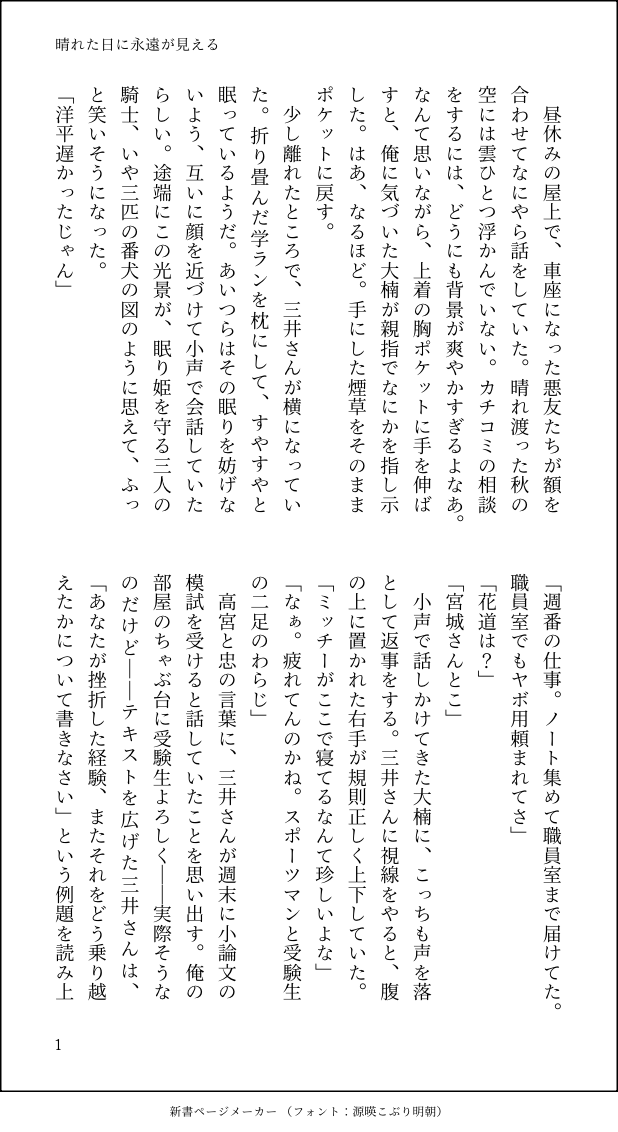 晴れた日に永遠が見える
　昼休みの屋上で、車座になった悪友たちが額を
合わせてなにやら話をしていた。晴れ渡った秋の
空には雲ひとつ浮かんでいない。カチコミの相談
をするには、どうにも背景が爽やかすぎるよなあ。
なんて思いながら、上着の胸ポケットに手を伸ば
すと、俺に気づいた大楠が親指でなにかを指し示
した。はあ、なるほど。手にした煙草をそのまま
ポケットに戻す。
　少し離れたところで、三井さんが横になってい
た。折り畳んだ学ランを枕にして、すやすやと
眠っているようだ。あいつらはその眠りを妨げな
いよう、互いに顔を近づけて小声で会話していた
らしい。途端にこの光景が、眠り姫を守る三人の
騎士、いや三匹の番犬の図のように思えて、ふっ
と笑いそうになった。
「洋平遅かったじゃん」
「週番の仕事。ノート集めて職員室まで届けてた。
職員室でもヤボ用頼まれてさ」
「花道は？」
「宮城さんとこ」
　小声で話しかけてきた大楠に、こっちも声を落
として返事をする。三井さんに視線をやると、腹
の上に置かれた右手が規則正しく上下していた。
「ミッチーがここで寝てるなんて珍しいよな」
「なぁ。疲れてんのかね。スポーツマンと受験生
の二足のわらじ」
　高宮と忠の言葉に、三井さんが週末に小論文の
模試を受けると話していたことを思い出す。俺の
部屋のちゃぶ台に受験生よろしく――実際そうな
のだけど――テキストを広げた三井さんは、
「あなたが挫折した経験、またそれをどう乗り越
えたかについて書きなさい」という例題を読み上
1
新書ページメーカー（フォント：源暎こぶり明朝）